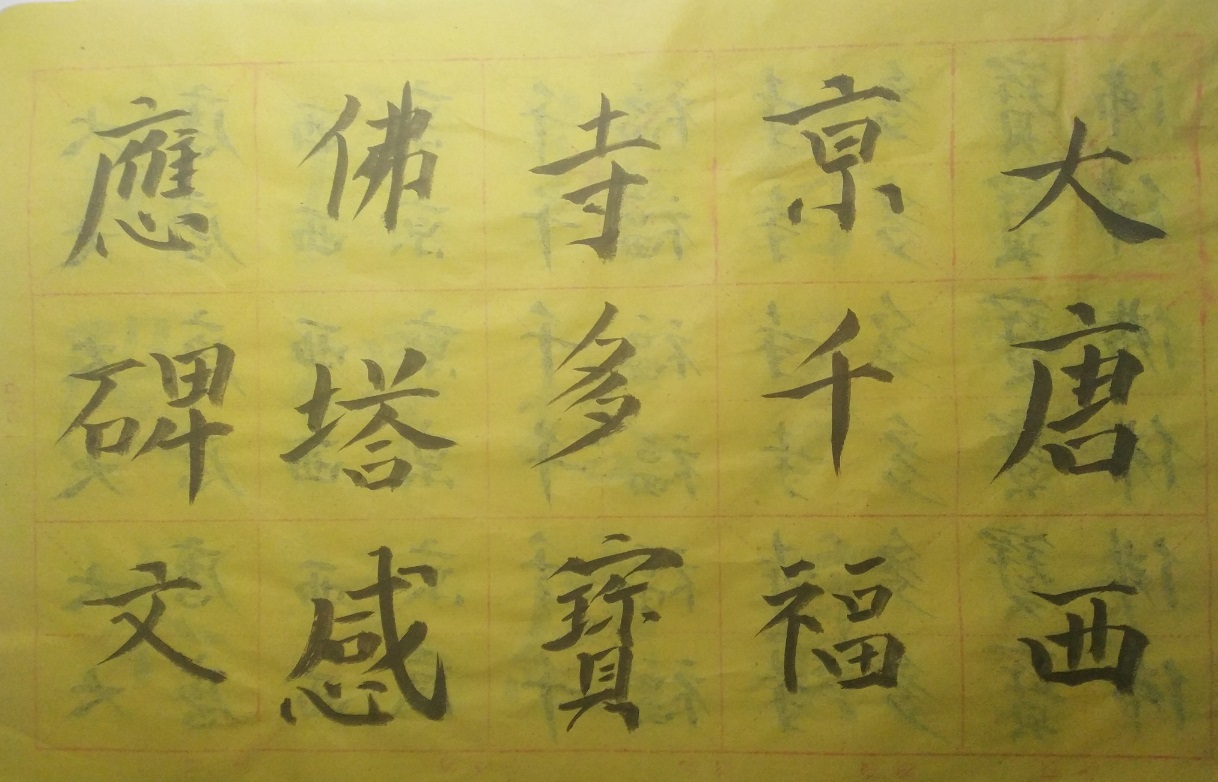 大唐西
京千福
寺多寶
佛塔感
應碑文